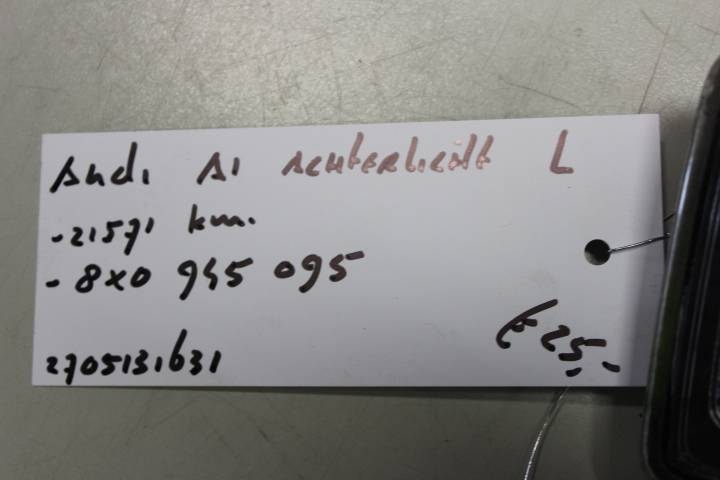 Audi A1 Achterlicht L
- 21571 km.
- 8X0 945 095
€25,-
2705131631